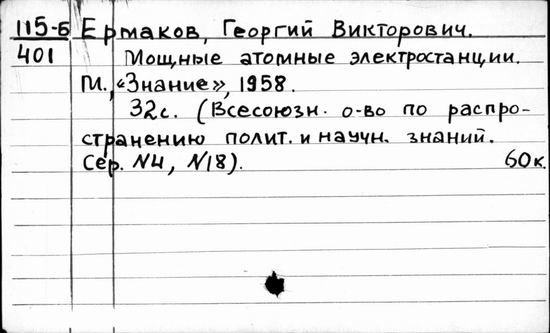 115-6 Ермаков, Георгий Викторович.
401 Мощные атомные электростанции.
М., «Знание», 1958.
32с. (Всесоюзн. о-во по распро-
странению полит. и научн. знаний.
Сер. №4, №18). 60к.